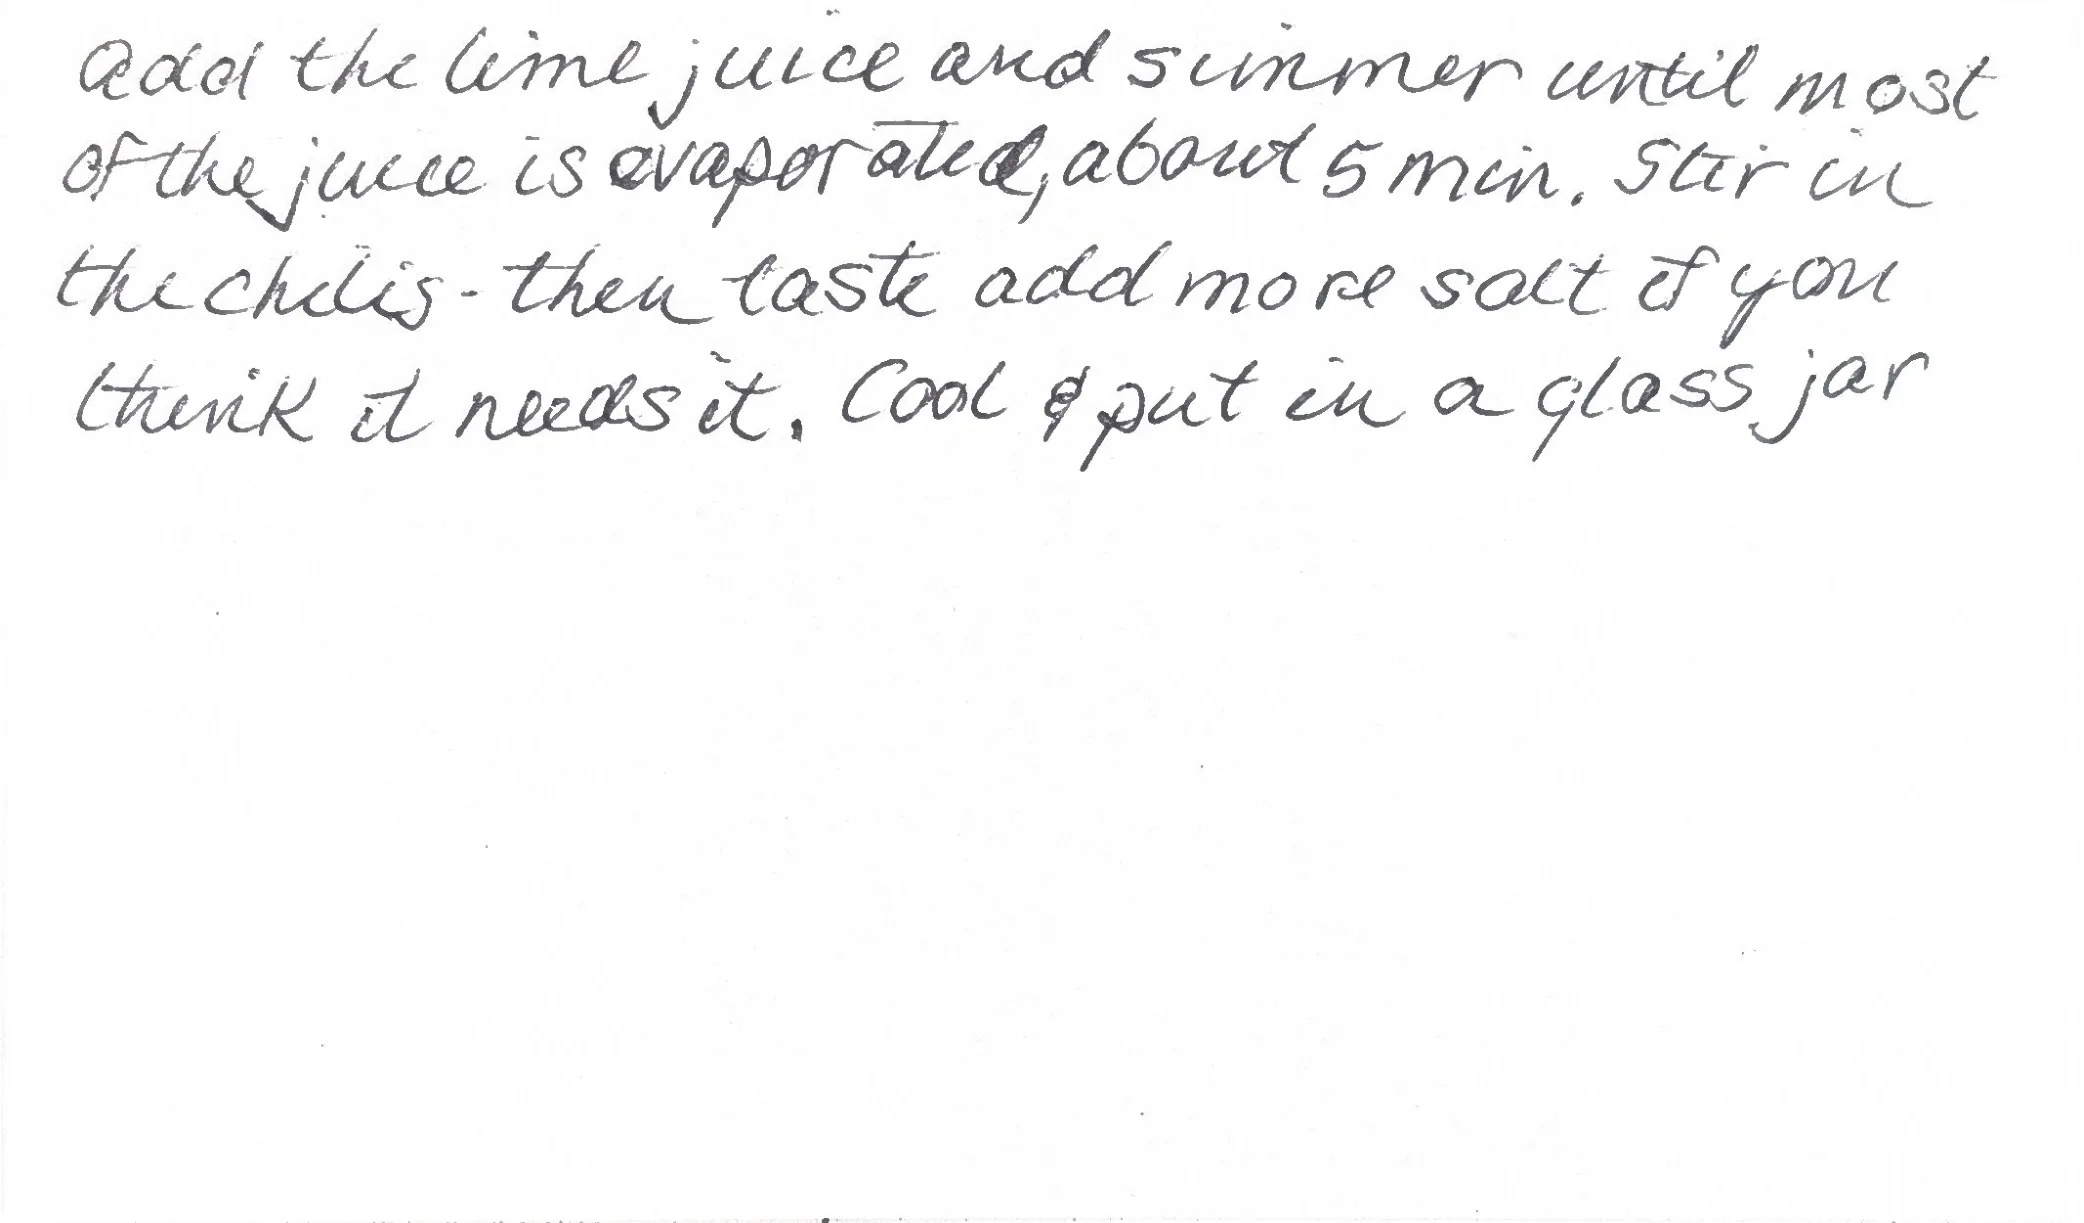 Add the lime juice and simmer until most
of the juice is evaporated, about 5 min. Stir in
the chilis - then taste add more salt if you
think it needs it. Cool & put in a glass jar